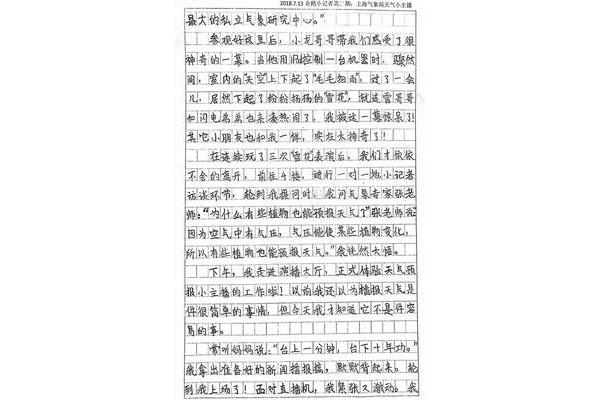 2018.7.13 企鹅小记者第二期：上海气象局天气小主播
最大的私立气象研究中心。”
参观好这里后，小龙哥哥带我们感受了很
神奇的一幕。当他用IP控制一台机器时，骤然
间，室内的“天空”上下起了“毛毛细雨”，过了一会
儿，居然下起了纷纷扬扬的“雪花”，就连雷哥哥
和闪电弟弟也来凑热闹了，我被这一幕惊呆了！
其它小朋友也和我一样，实在太神奇了！
在连续玩了三次“雪花”表演后，我们才依依
不舍的离开，前往4楼，进行一对一地小记者
访谈环节，轮到我提问时，我问气象专家张老
师：“为什么有些植物也能预报天气？”张老师说“
因为空气中有气压，气压能使某些植物变化，
所以有些植物也能预报天气。”我恍然大悟。
下午，我走进演播大厅，正式体验天气预
报小主播的工作啦！以前我还以为播报天气是
件很简单的事情，但今天我才知道它不是件容
易的事。
常听妈妈说：“台上一分钟，台下十年功。”
我拿出准备好的新闻播报稿，默默背起来。轮
到我上场了！面对直播机，我紧张又激动。我